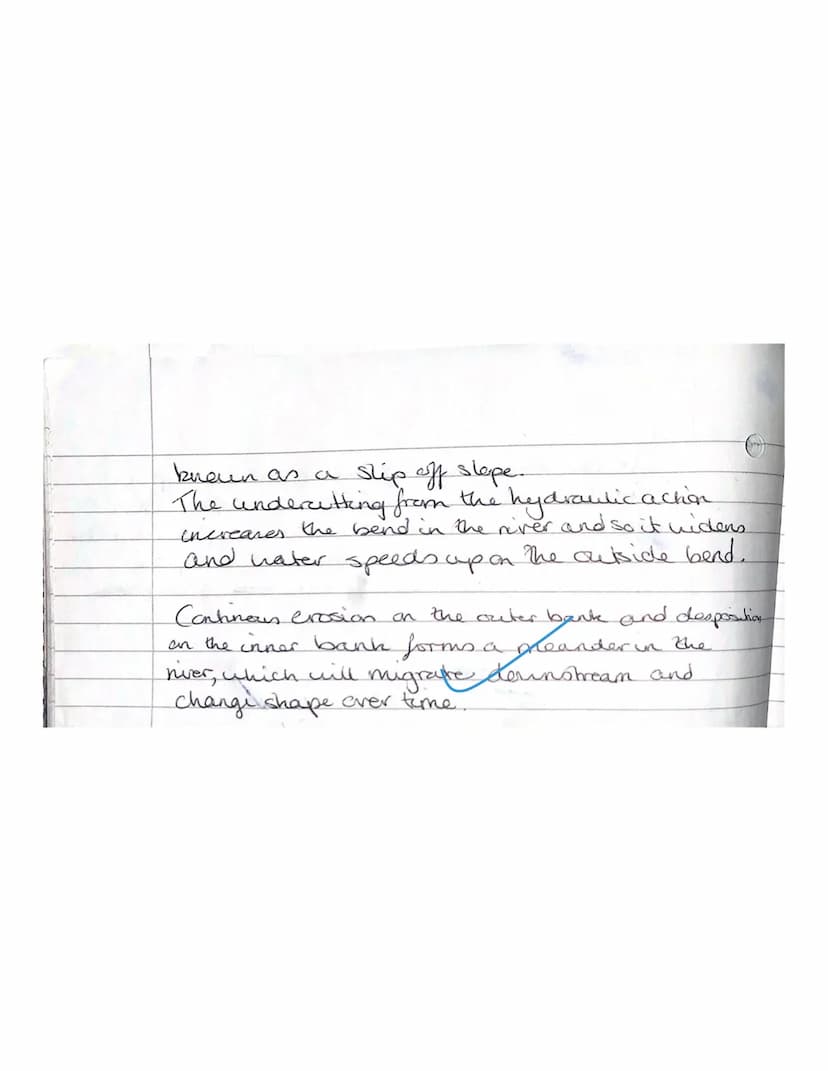 known as a slip off slope.
The undercutting from the hydraulic action
increases the bend in the river and so it widens
and water speeds up on the outside bend.
Continous erosion on the outer bank and desposition
on the inner bank forms a meander in the
river, which will migrate downstream and
change shape over time.